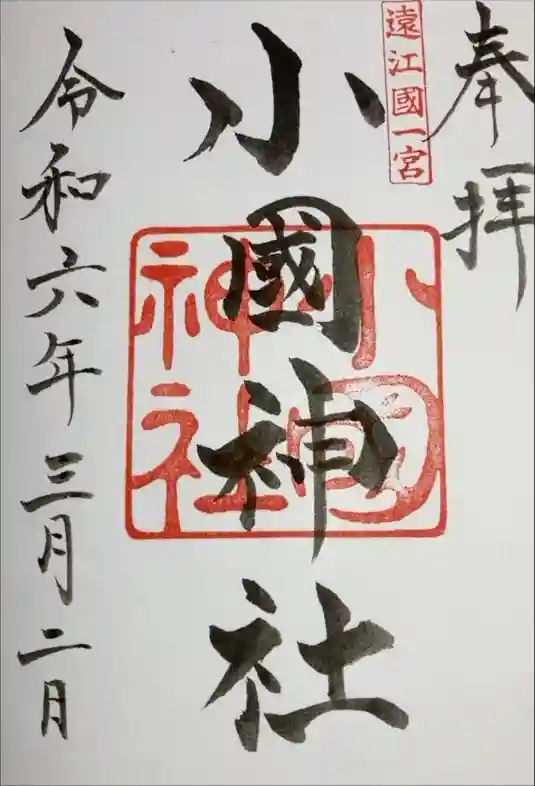 奉拝
遠江國一宮
小國神社
小國
神社
令和六年三月二日